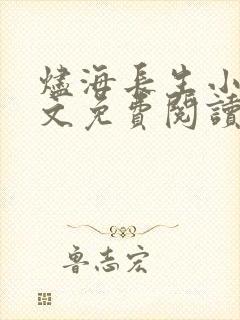 燼海長生小
文免費閱讀
魯志宏